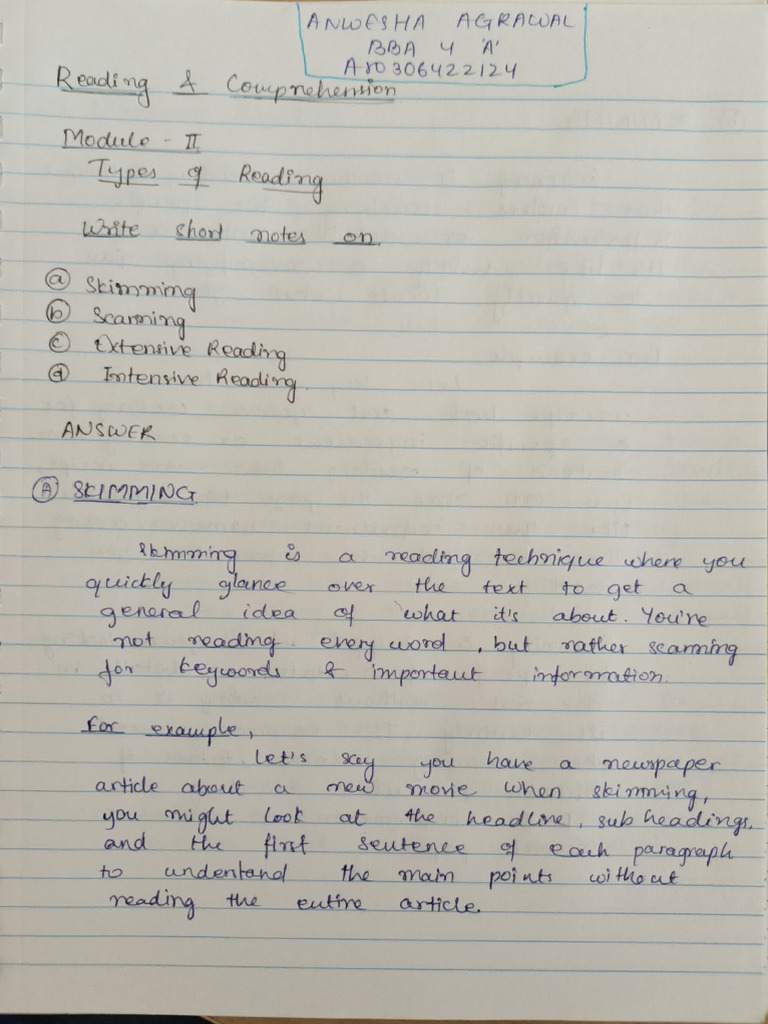 ANWESHA AGRAWAL
BBA 4 'A'
A70306422124
Reading & Comprehension
Module - II
Types of Reading
Write short notes on
(a) Skimming
(b) Scanning
(c) Extensive Reading
(d) Intensive Reading.
ANSWER
(A) SKIMMING
Skmming is a reading technique where you
quickly glance over the text to get a
general idea of what it's about. You're
not reading every word, but rather scanning
for keywords & important information.
For example,
Let's say you have a newspaper
article about a new movie when skimming,
you might look at the headline, sub headings,
and the first sentence of each paragraph
to understand the main points without
reading the entire article.